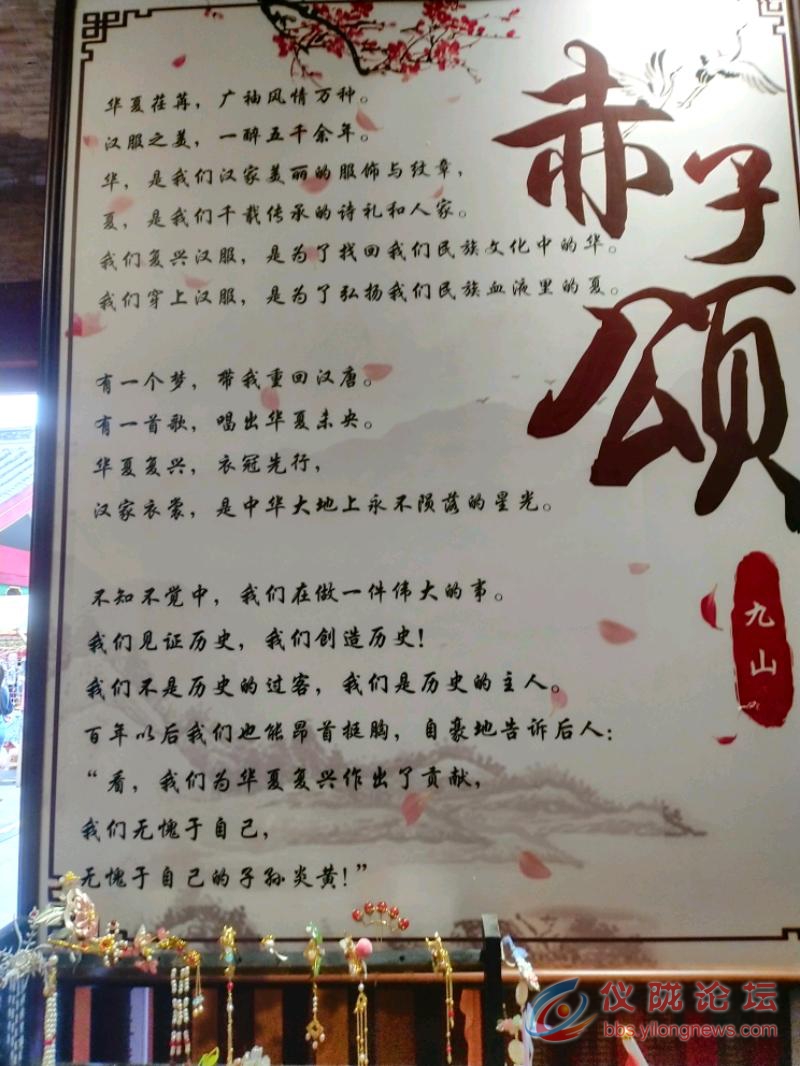 赤子颂
九山
华夏荏苒，广袖风情万种。
汉服之美，一醉五千余年。
华，是我们汉家美丽的服饰与纹章，
夏，是我们千载传承的诗礼和人家。
我们复兴汉服，是为了找回我们民族文化中的华。
我们穿上汉服，是为了弘扬我们民族血液里的夏。
有一个梦，带我重回汉唐。
有一首歌，唱出华夏未央。
华夏复兴，衣冠先行，
汉家衣裳，是中华大地上永不陨落的星光。
不知不觉中，我们在做一件伟大的事。
我们见证历史，我们创造历史！
我们不是历史的过客，我们是历史的主人。
百年以后我们也能昂首挺胸，自豪地告诉后人：
“看，我们为华夏复兴作出了贡献，
我们无愧于自己，
无愧于自己的子孙炎黄！”
仪陇论坛
bbs.yilongnews.com